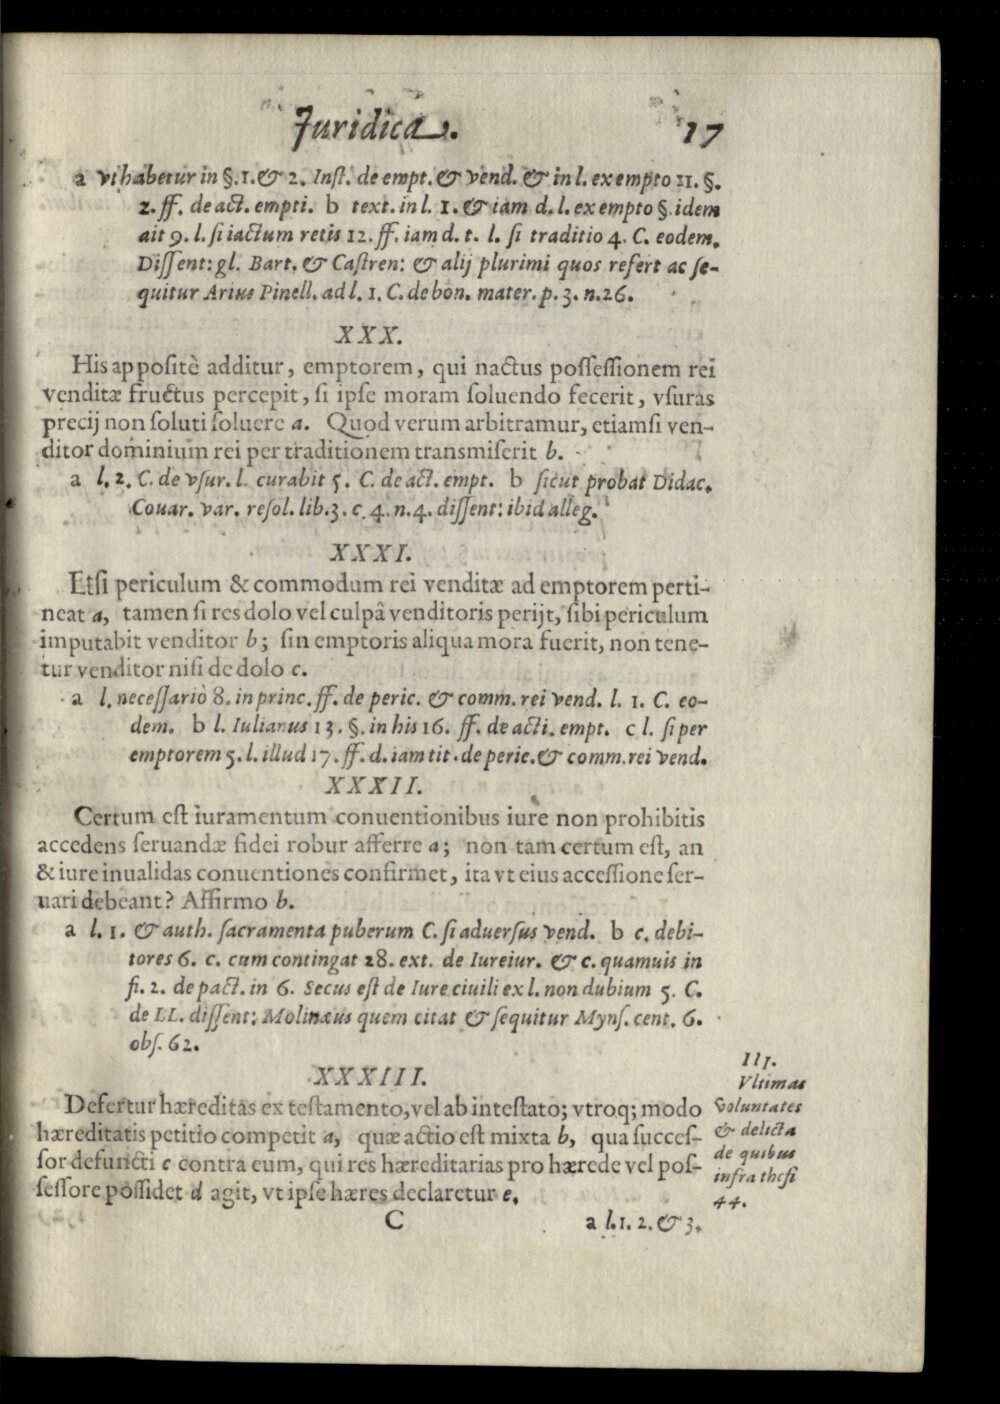 Juridica. 17
a vt habetur in §. 1. & 2. Inst. de empt. & vend. & in l. ex empto 11. §.
2. ff. de act. empti. b text. in l. 1. & iam d. l. ex empto §. idem
ait 9. l. si iactum retis 12. ff. iam d. t. l. si traditio 4. C. eodem.
Dissent: gl. Bart. & Castren: & alij plurimi quos refert ac se-
quitur Arius Pinell. ad l. 1. C. de bon. mater. p. 3. n. 26.
XXX.
His appositè additur, emptorem, qui nactus possessionem rei
venditæ fructus percepit, si ipse moram soluendo fecerit, vsuras
precij non soluti soluere a. Quod verum arbitramur, etiamsi ven-
ditor dominium rei per traditionem transmiserit b.
a l. 2. C. de vsur. l. curabit 5. C. de act. empt. b sicut probat Didac.
Couar. var. resol. lib. 3. c. 4. n. 4. dissent: ibid alleg.
XXXI.
Etsi periculum & commodum rei venditæ ad emptorem perti-
neat a, tamen si res dolo vel culpâ venditoris perijt, sibi periculum
imputabit venditor b; sin emptoris aliqua mora fuerit, non tene-
tur venditor nisi de dolo c.
a l. necessariò 8. in princ. ff. de peric. & comm. rei vend. l. 1. C. eo-
dem. b l. Iulianus 13. §. in his 16. ff. de acti. empt. c l. si per
emptorem 5. l. illud 17. ff. d. iam tit. de peric. & comm. rei vend.
XXXII.
Certum est iuramentum conuentionibus iure non prohibitis
accedens seruandæ fidei robur afferre a; non tam certum est, an
& iure inualidas conuentiones confirmet, ita vt eius accessione ser-
uari debeant? Affirmo b.
a l. 1. & auth. sacramenta puberum C. si aduersus vend. b c. debi-
tores 6. c. cum contingat 28. ext. de Iureiur. & c. quamuis in
fi. 2. de pact. in 6. Secus est de Iure ciuili ex l. non dubium 5. C.
de LL. dissent: Molinæus quem citat & sequitur Myns. cent. 6.
obs. 62.
XXXIII.
Defertur hæreditas ex testamento, vel ab intestato; vtroq; modo
hæreditatis petitio competit a, quæ actio est mixta b, qua succes-
sor defuncti c contra eum, qui res hæreditarias pro hærede vel pos-
sessore possidet d agit, vt ipse hæres declaretur e.
III.
Vltimas
voluntates
& delicta
de quibus
infra thesi
44.
C a l. 1. 2. & 3.